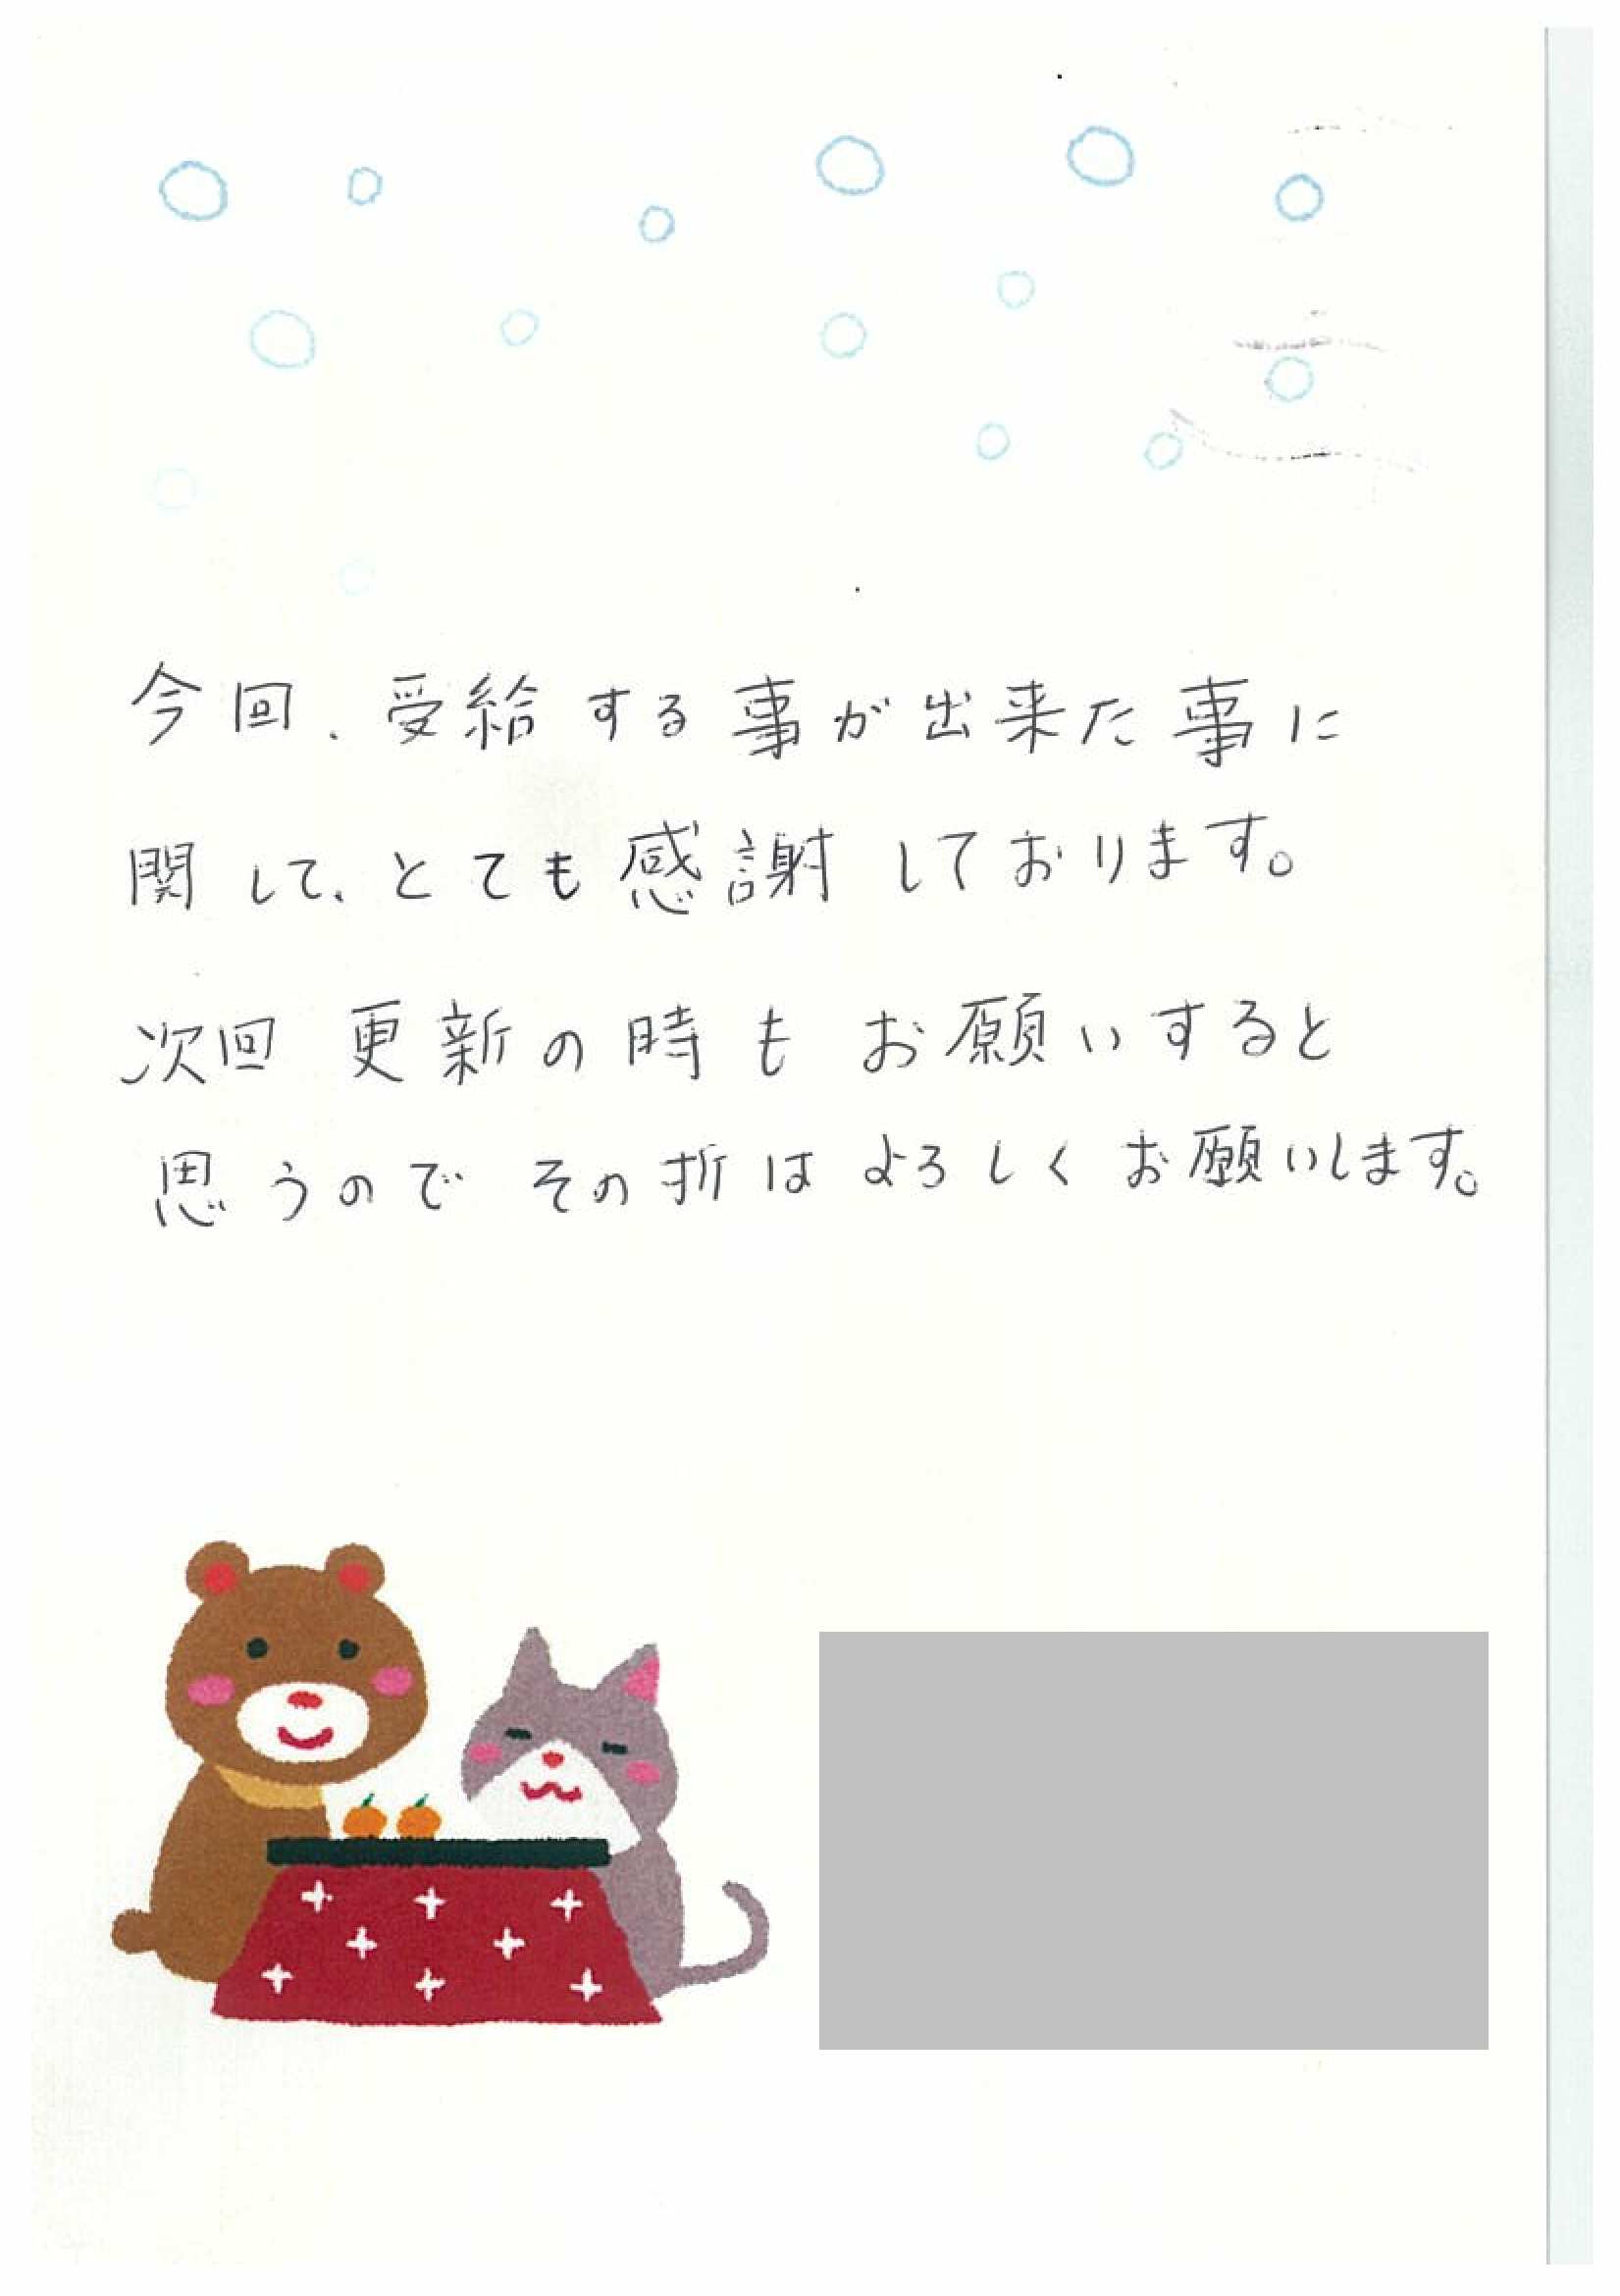 今回、受給する事が出来た事に
関して、とても感謝しております。
次回更新の時もお願いすると
思うのでその折はよろしくお願いします。